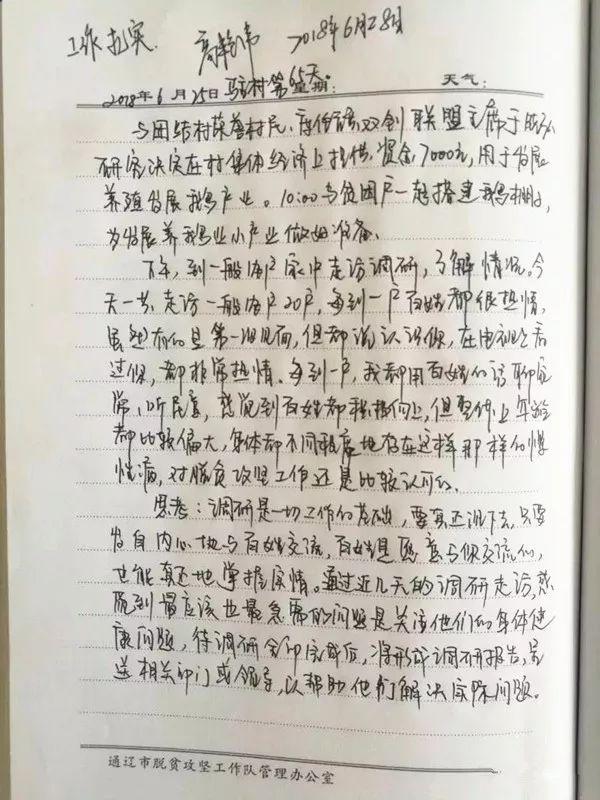 工作扎实 2018年6月28日
2018年6月25日 驻村第65天 星期： 天气：
与团结村荣誉村民、双创联盟主席于
研究决定在村集体经济上提供资金7000元，用于发展
养殖发展鹅产业。10:00与贫困户一起搭建鹅棚，
为发展养鹅业小产业做好准备。
下午，到一般农户家中走访调研，了解情况。今
天一共走访一般农户20户，每到一户百姓都很热情，
虽然有的是第一次见面，但都说认识你，在电视上看
过你，都非常热情。每到一户，我都用百姓的话聊家
常、听民意，感觉到百姓都积极向上，但整体上年龄
都比较偏大，身体都不同程度地存在这样那样的慢
性病，对脱贫攻坚工作还是比较认可的。
思考：调研是一切工作的基础，要真正沉下去，只要
发自内心地与百姓交流，百姓是愿意与你交流的，
也能真正地掌握实情。通过近几天的调研走访，感
觉到最应该也最急需的问题是关注他们的身体健
康问题，待调研全部完毕后，将形成调研报告，呈
送相关部门或领导，以帮助他们解决实际问题。
通辽市脱贫攻坚工作队管理办公室